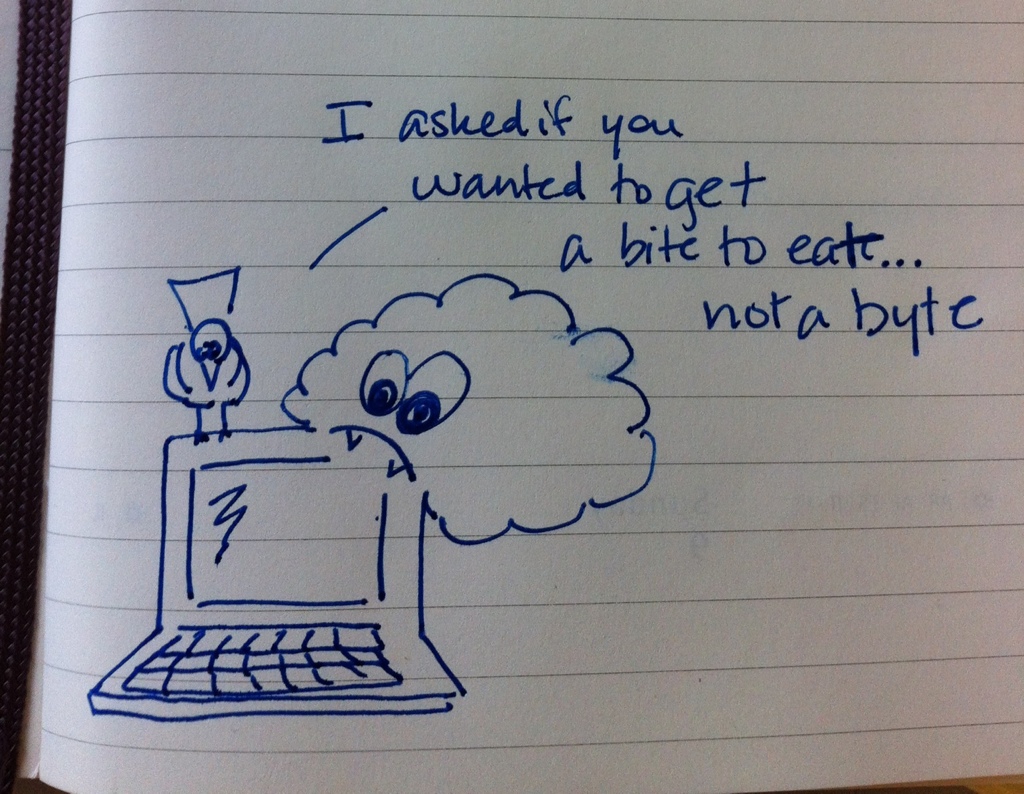 I asked if you
wanted to get
a bite to eat...
not a byte